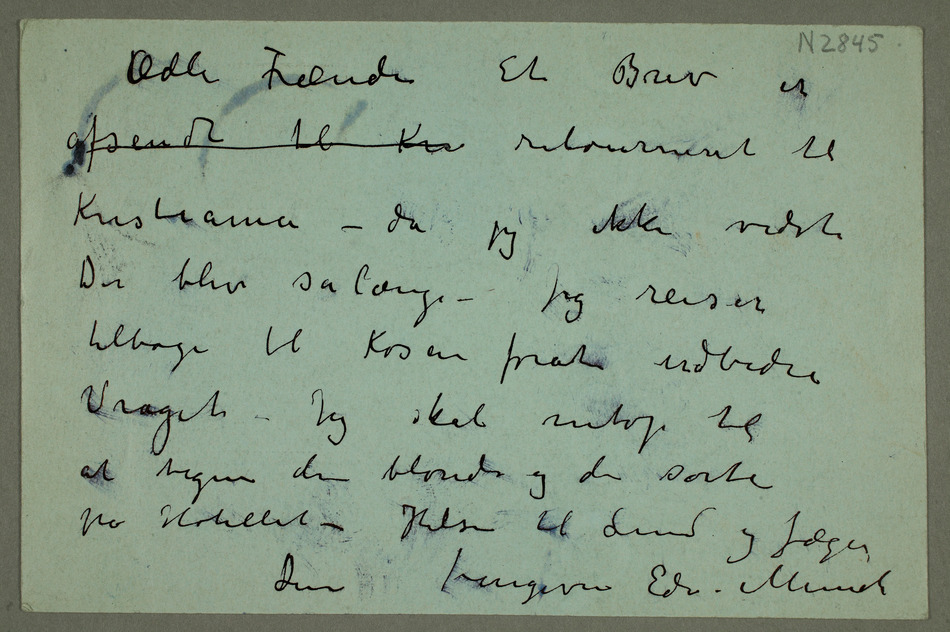 N2845
Ædle Frænde Et Brev er
afsendt til Kra retourneret til
Kristiania – da jeg ikke vidste
De blev så længe – Jeg reiser
tilbage til Kosen forat udbedre
Vraget – Jeg skal netop til
at tegne den blonde og den sorte
på Hotellet – Hilsen til Lund og Jæger
Din hengivne Edv. Munch